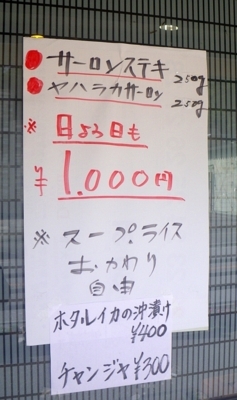 ● サーロンステキ 250g
● ヤハラカサーロン 250g
※ 日よる日も
¥1.000円
※ スープ.ライス
おかわり
自由
ホタルイカの沖漬け
¥400
チャンジャ¥300